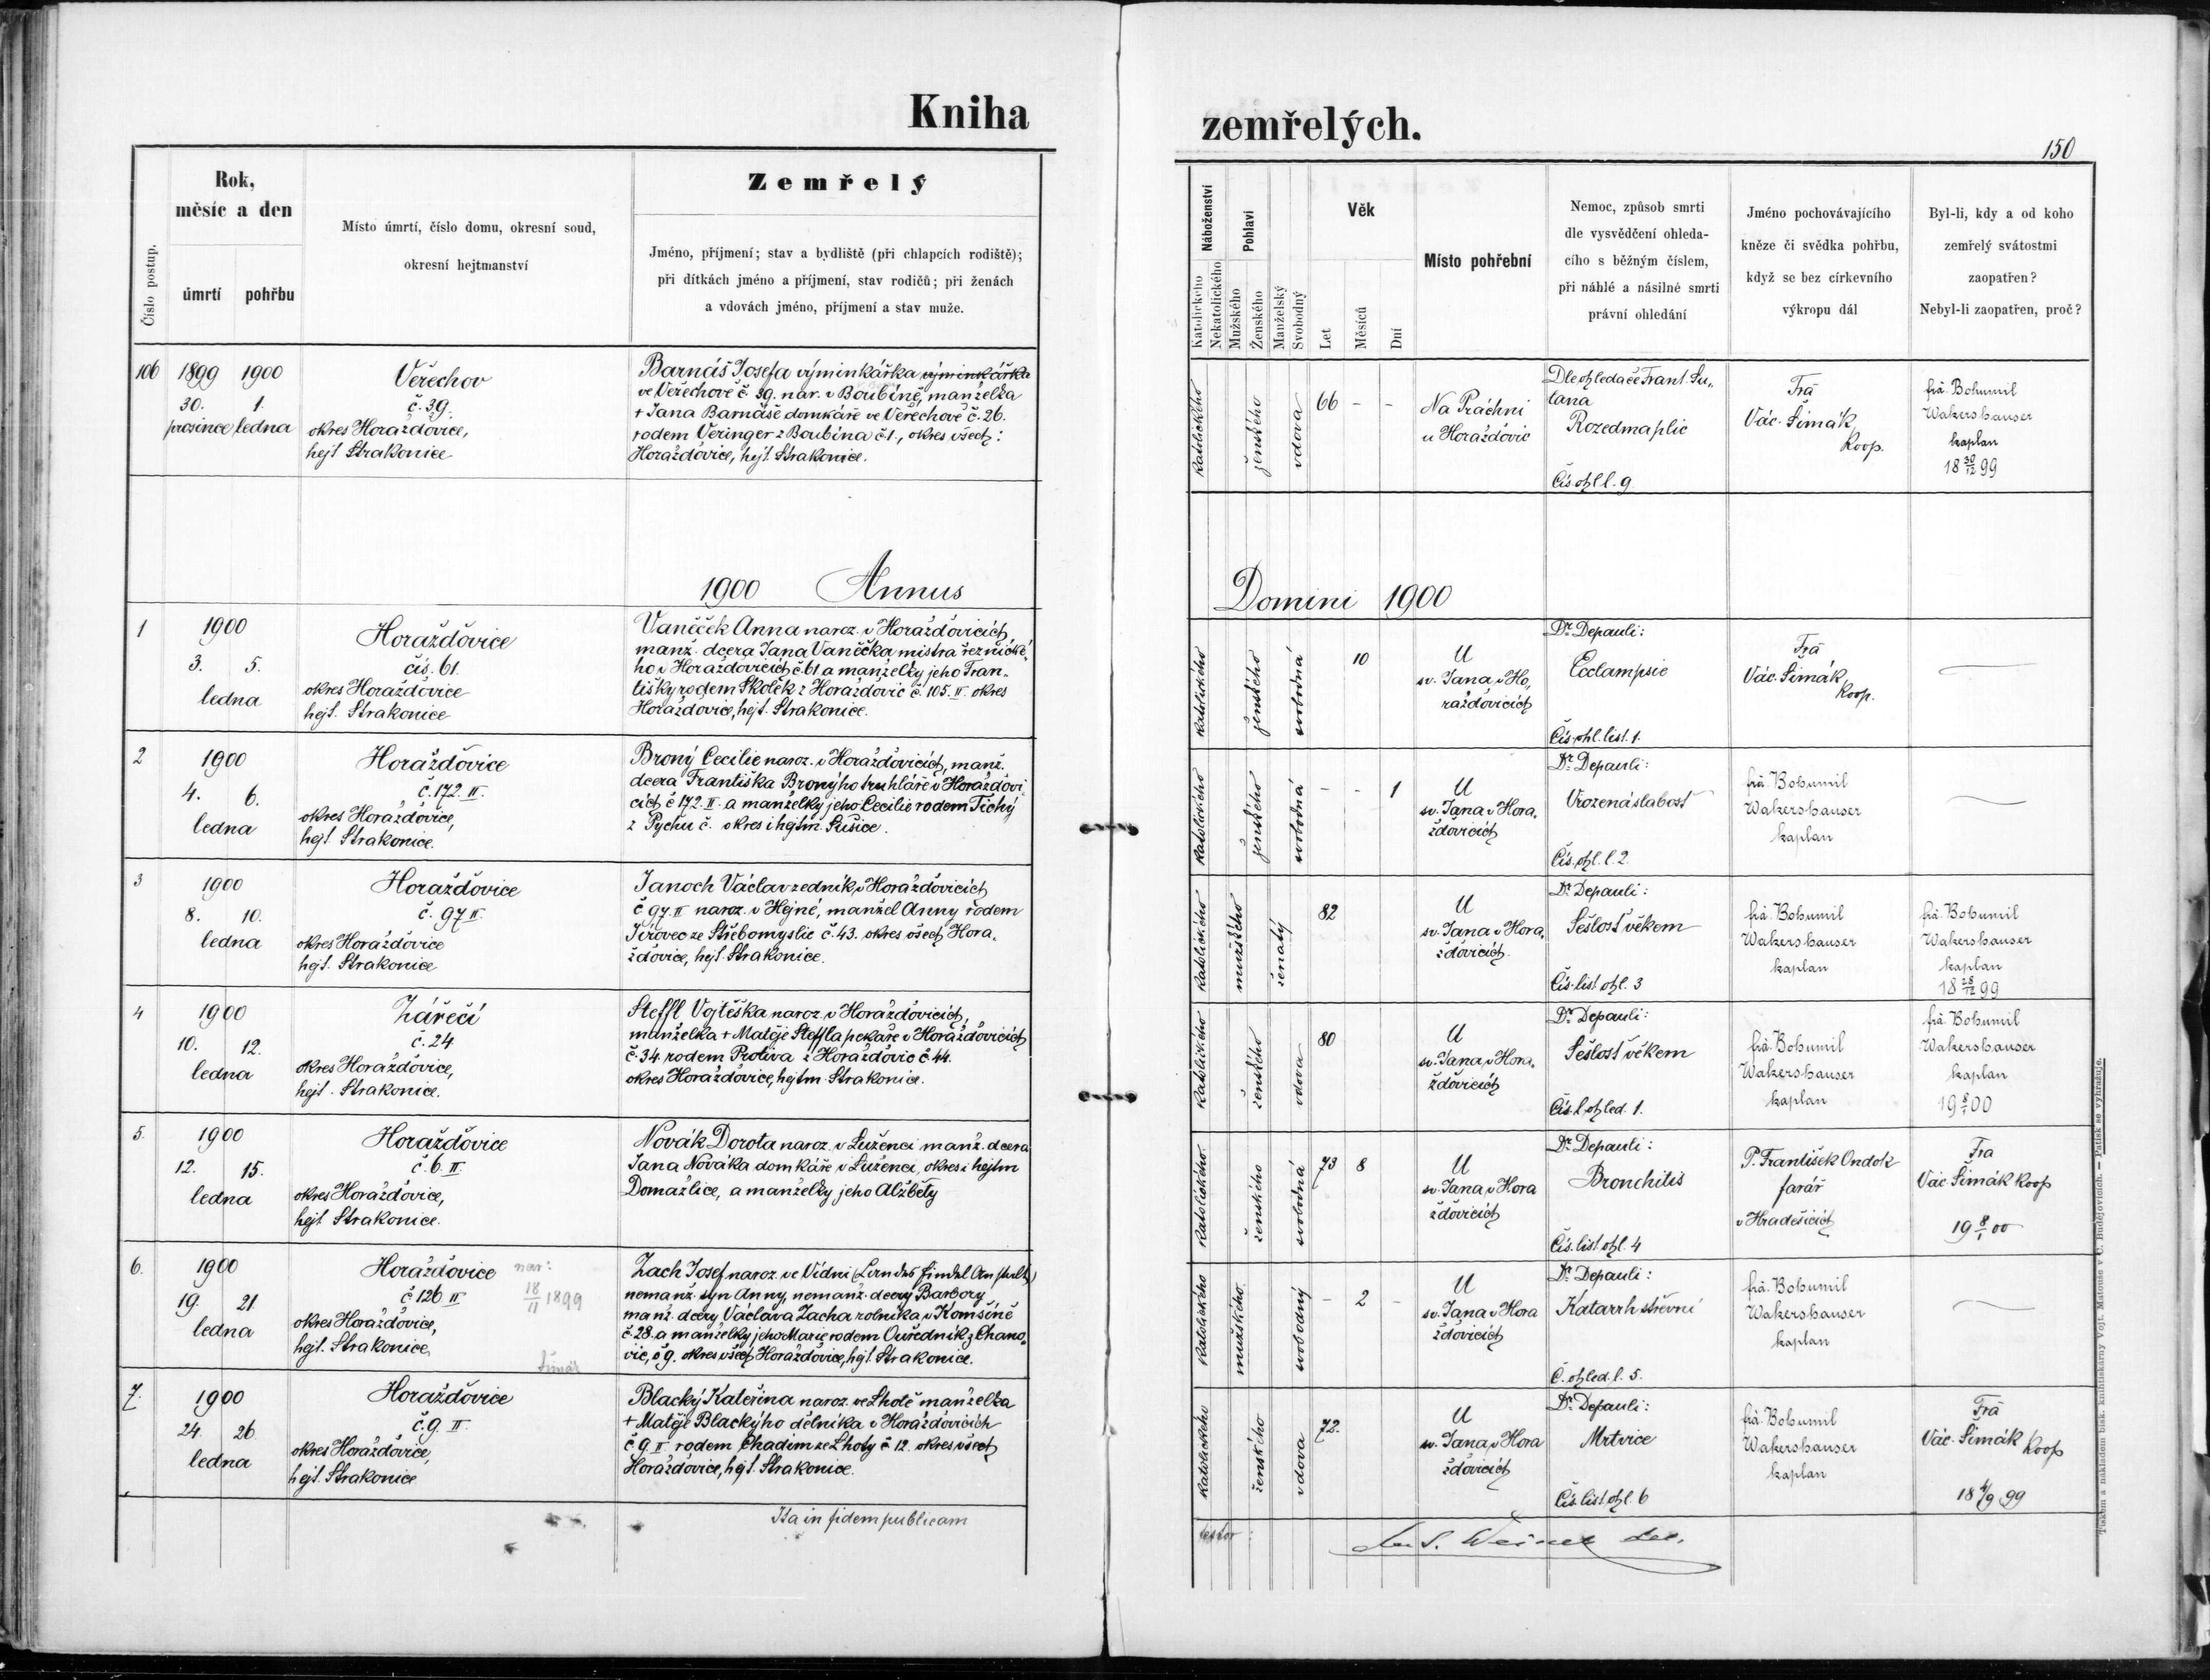 Kniha
Rok,
měsíc a den
Číslo postup.
úmrtí
pohřbu
Místo úmrtí, číslo domu, okresní soud,
okresní hejtmanství
Zemřelý
Jméno, příjmení; stav a bydliště (při chlapcích rodiště);
při dítkách jméno a příjmení, stav rodičů; při ženách
a vdovách jméno, příjmení a stav muže.
106
1899 1900
30. 1.
prosince ledna
Veřechov
č. 39.
okres Horažďovice,
hejt Strakonice
Barnáš Josefa výminkářka výminkářka
ve Veřechově č. 39. nar. v Boubíně, manželka
+ Jana Barnáše domkáře ve Veřechově č. 26.
rodem Veringer z Boubína č. 1., okres všech:
Horažďovice, hejt. Strakonice.
1900 Annus
1
1900
3. 5.
ledna
Horažďovice
čís. 61
okres Horažďovice
hejt. Strakonice
Vaněček Anna naroz. v Horažďovicích,
manž. dcera Jana Vaněčka mistra řeznické-
ho v Horažďovicích č. 61 a manželky jeho Fran-
tišky rodem Skolek z Horažďovic č. 105. II. okres
Horažďovice, hejt. Strakonice.
2
1900
4. 6.
ledna
Horažďovice
č. 172. II.
okres Horažďovice,
hejt. Strakonice.
Brony Cecilie naroz. v Horažďovicích, manž.
dcera Františka Bronýho truhláře v Horažďovi-
cích č 172. II. a manželky jeho Cecilie rodem Tichý
z Pychu č. okres i hejtm. Sušice.
3
1900
8. 10.
ledna
Horažďovice
č. 97 II.
okres Horažďovice
hejt. Strakonice
Janoch Václav zedník v Horažďovicích
č 97. II naroz. v Hejné, manžel Anny rodem
Jírovec ze Střebomyslic č. 43. okres všech Hora-
žďovice, hejt. Strakonice.
4
1900
10. 12.
ledna
Zářečí
č. 24
okres Horažďovice,
hejt. Strakonice.
Steffl Vojtěška naroz. v Horažďovicích,
manželka + Matěje Steffla pekaře v Horažďovicích
č. 34 rodem Protiva z Horažďovic č. 44.
okres Horažďovice, hejtm. Strakonice.
5.
1900
12. 15.
ledna
Horažďovice
č. 6. II.
okres Horažďovice,
hejt. Strakonice.
Novák Dorota naroz. v Luženci manž. dcera
Jana Nováka domkáře v Luženci, okres i hejtm
Domažlice, a manželky jeho Alžběty
6.
1900
19. 21
ledna
Horažďovice
č 126 II
okres Horažďovice,
hejt. Strakonice
nar:
18/11 1899
Šimák
Zach Josef naroz. ve Vídni (Landes Findel Anstalt)
nemanž. syn Anny, nemanž. dcery Barbory
manž. dcery Václava Zacha rolníka v Komšíně
č. 28. a manželky jeho Marie rodem Ouředník z Chano-
vic, č 9. okres všech Horažďovice, hejt. Strakonice.
7.
1900
24. 26.
ledna
Horažďovice
č. 9. II.
okres Horažďovice,
hejt. Strakonice
Blacký Kateřina naroz. ve Lhotě manželka
+ Matěje Blackýho dělníka v Horažďovicích
č. 9. II. rodem Chadim ze Lhoty č 12. okres všech
Horažďovice, hejt. Strakonice.
Ita in fidem publicam
zemřelých.
150
Náboženství
Katolického
Nekatolického
Pohlaví
Mužského
Ženského
Manželský
Svobodný
Věk
Let
Měsíců
Dní
Místo pohřební
Nemoc, způsob smrti
dle vysvědčení ohleda-
cího s běžným číslem,
při náhlé a násilné smrti
právní ohledání
Jméno pochovávajícího
kněze či svědka pohřbu,
když se bez církevního
výkropu dál
Byl-li, kdy a od koho
zemřelý svátostmi
zaopatřen?
Nebyl-li zaopatřen, proč?
katolického
ženského
vdova
66 - -
Na Práchni
u Horažďovic
Dle ohledače Frant. Su-
lana
Rozedma plic
Čís. ohl l. 9
Frä
Vác. Šimák
Koop.
frä. Bohumil
Wakershauser
kaplan
18 30/12 99
Domini 1900
katolického
ženského
svobodná
10
U
sv. Jana v Ho-
ražďovicích
Dr. Depauli:
Ecclampsie
Čís. ohl. list. 1.
Frä
Vác. Šimák
Koop.
katolického
ženského
svobodná
- - 1
U
sv. Jana v Hora-
žďovicích
Dr. Depauli:
Vrozená slabost
Čís. ohl. l. 2.
frä. Bohumil
Wakershauser
kaplan
katolického
mužského
ženatý
82
U
sv. Jana v Hora-
žďovicích.
Dr. Depauli:
Sešlost věkem
Čís. list ohl. 3
frä. Bohumil
Wakershauser
kaplan
frä. Bohumil
Wakershauser
kaplan
18 28/12 99
katolického
ženského
vdova
80
U
sv. Jana v Hora-
žďovicích
Dr. Depauli:
Sešlost věkem
Čís. l. ohled. 1.
frä. Bohumil
Wakershauser
kaplan
frä. Bohumil
Wakershauser
kaplan
19 8/1 00
katolického
ženského
svobodná
73 8
U
sv. Jana v Hora
žďovicích
Dr. Depauli:
Bronchitis
Čís. list ohl. 4
P. František Ondok
farář
v Hradešicích
Fra
Vác. Šimák Koop
19 8/1 00
katolického
mužského
svobodný
- 2 -
U
sv. Jana v Hora
žďovicích
Dr. Depauli:
Katarrh střevní
Č. ohled. l. 5.
frä. Bohumil
Wakershauser
kaplan
katolického
ženského
vdova
72.
U
sv. Jana v Hora
žďovicích
Dr. Depauli:
Mrtvice
Čís. list ohl. 6
frä. Bohumil
Wakershauser
kaplan
Frä
Vác. Šimák Koop
18 4/9 99
testor:
Tiskem a nákladem bisk. knihtiskárny Vojt. Matouše v Č. Budějovicích. — Patisk se vyhražuje.